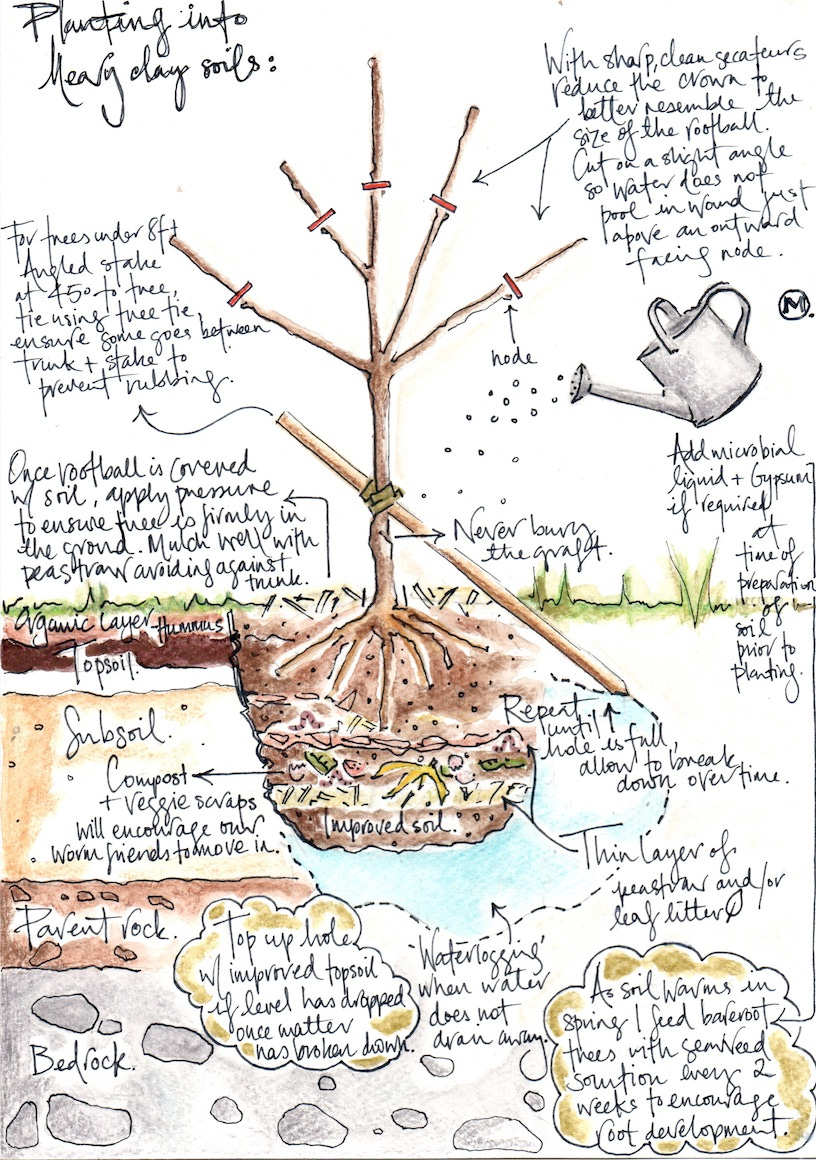 Planting into
Heavy clay soils:
With sharp, clean secateurs
reduce the crown to
better resemble the
size of the rootball.
Cut on a slight angle
so water does not
pool in wound just
above an outward
facing node.
For trees under 8ft
Angled stake
at 45º to tree,
tie using tree tie,
ensure some goes between
trunk + stake to
prevent rubbing.
M.
node
Add microbial
liquid + Gypsum
if required
at
time of
preparation
of
soil
prior to
planting.
Once rootball is covered
w/ soil, apply pressure
to ensure tree is firmly in
the ground. Mulch well with
peastraw avoiding against
trunk.
Never bury
the graft.
Organic layer - Hummus
Topsoil.
Subsoil.
Repeat
until
hole is full,
allow to break
down over time.
Compost
+ veggie scraps
will encourage our
worm friends to move in.
Improved soil.
Thin layer of
peastraw and/or
leaf litter
Parent rock.
Top up hole
w/ improved topsoil
if level has dropped
once matter
has broken down.
'Waterlogging'
when water
does not
drain away.
As soil warms in
spring I feed bareroot
trees with seaweed
solution every 2
weeks to encourage
root development.
Bedrock.